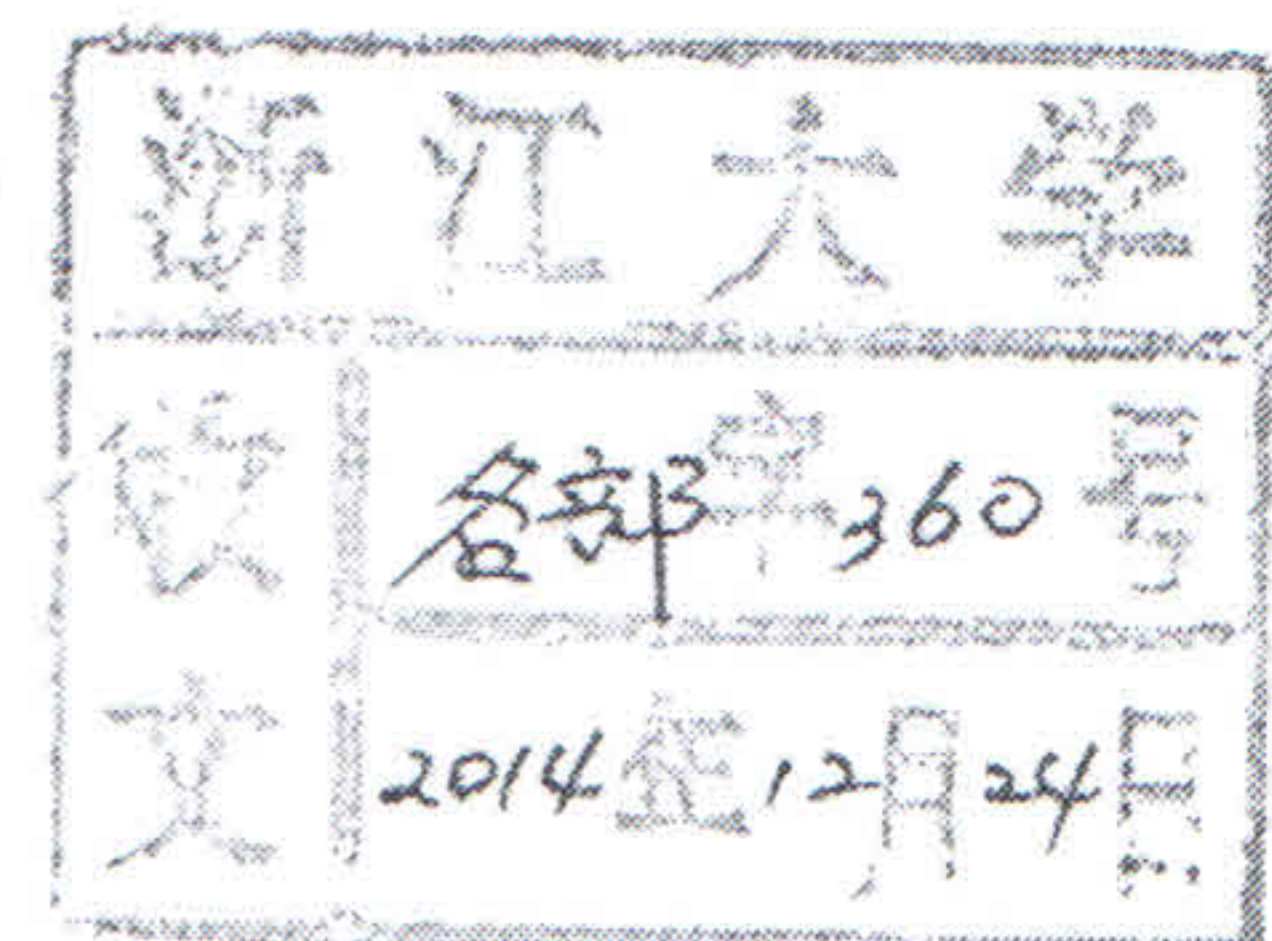 浙江大学
收文
各部字360号
2014年12月24日